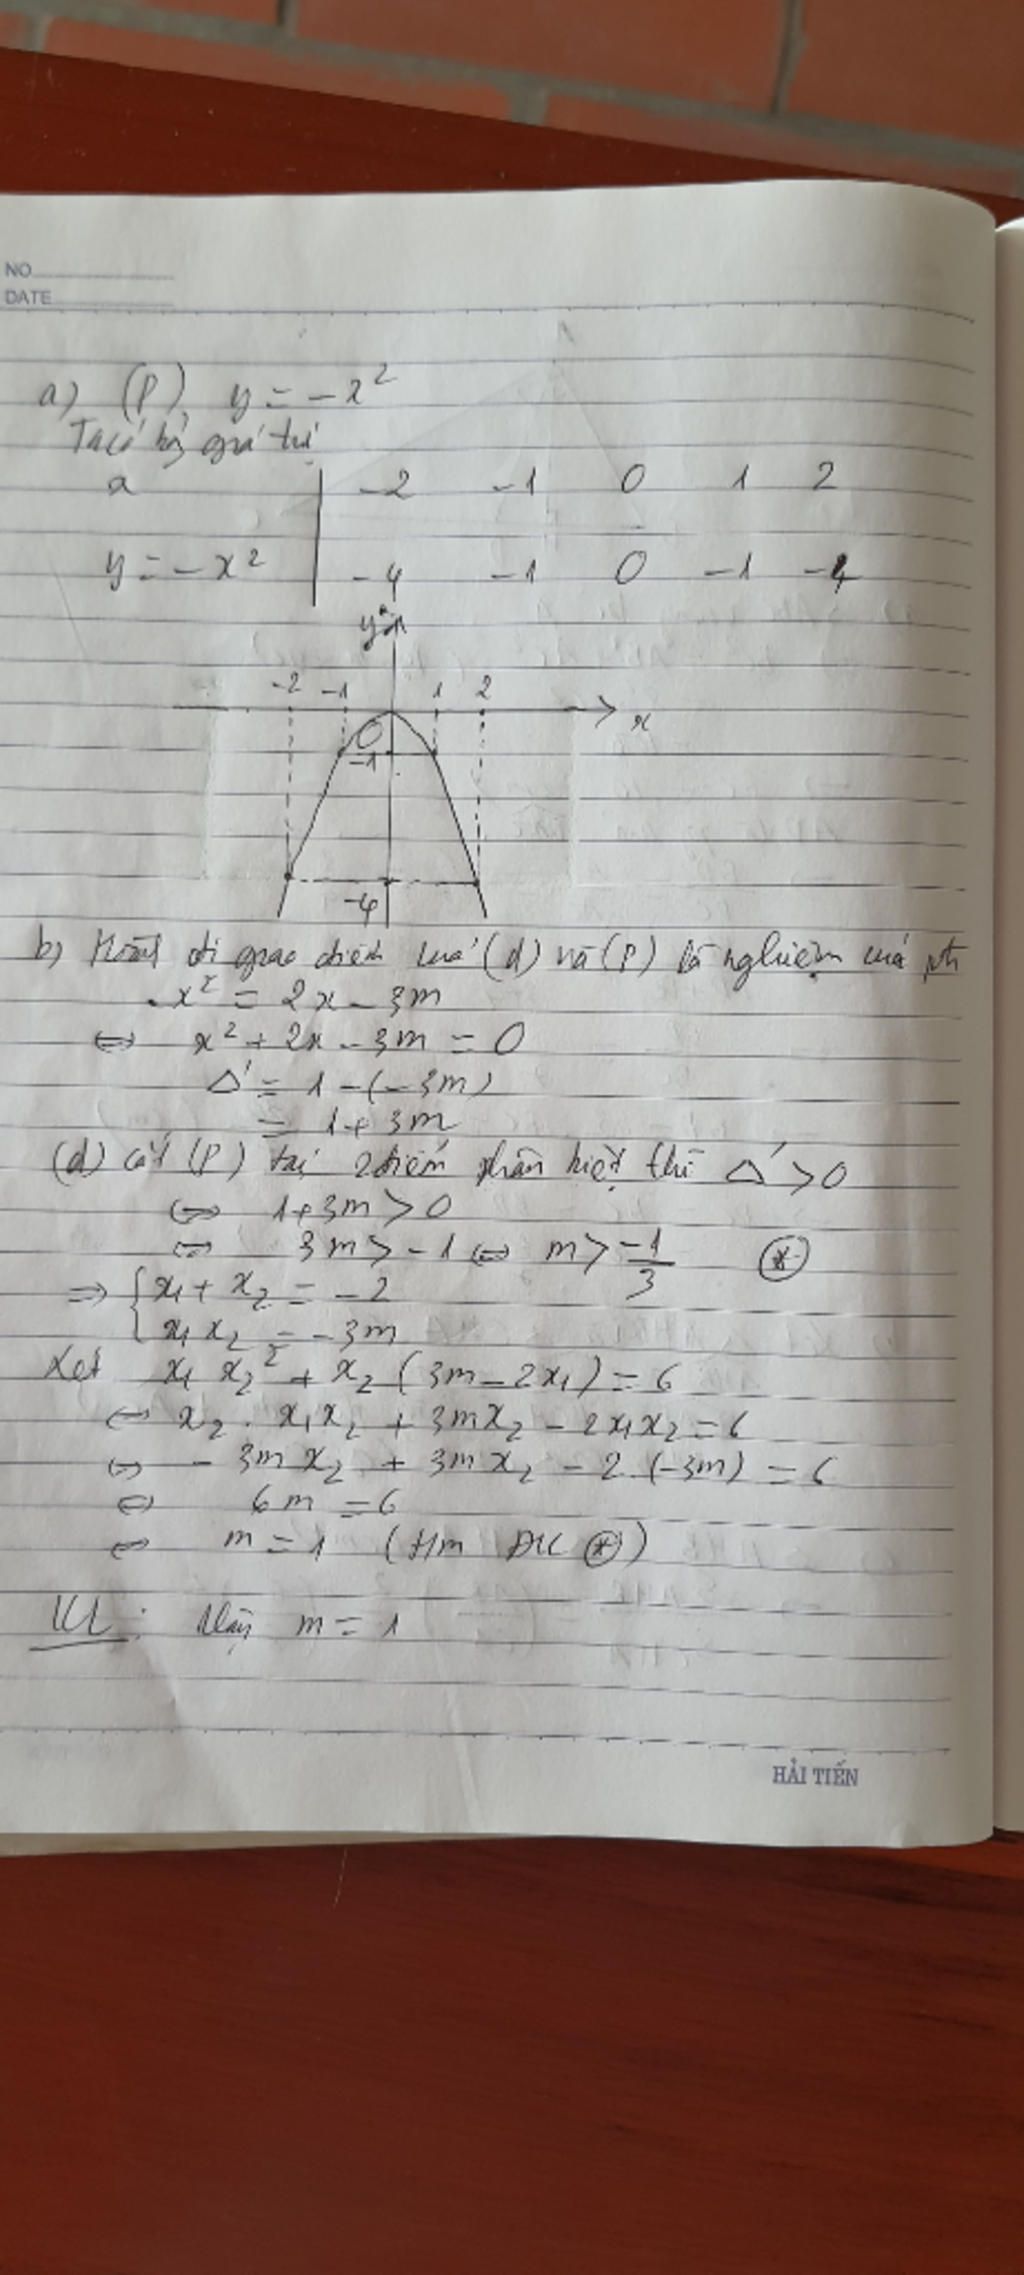 NO
DATE
a) (P) y = -x²
Ta có bảng giá trị
x -2 -1 0 1 2
y = -x² -4 -1 0 -1 -4
y
-2 -1 1 2
x
O
-1
-4
b) Hoành độ giao điểm của (d) và (P) là nghiệm của pt
-x² = 2x - 3m
⇔ x² + 2x - 3m = 0
Δ' = 1 - (-3m)
= 1 + 3m
(d) cắt (P) tại 2 điểm phân biệt thì Δ' > 0
⇔ 1 + 3m > 0
⇔ 3m > -1 ⇔ m > -1/3 (*)
⇒ { x₁ + x₂ = -2
x₁ x₂ = -3m
Xét x₁ x₂² + x₂ (3m - 2x₁) = 6
⇔ x₂ . x₁x₂ + 3mx₂ - 2x₁x₂ = 6
⇔ - 3m x₂ + 3m x₂ - 2 (-3m) = 6
⇔ 6m = 6
⇔ m = 1 (tm ĐK (*))
KL: Vậy m = 1
HẢI TIẾN